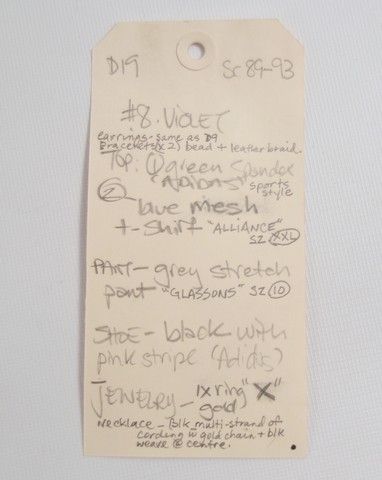 D19 Sc 89-93
#8. VIOLET
earrings - same as D9
Bracelets (x2) bead + leather braid.
TOP: ① green Spandex
"ADIDAS" sports style
② - blue mesh
t-shirt "ALLIANCE" SZ XXL
PANT - grey stretch
pant "GLASSONS" SZ 10
SHOE - black with
pink stripe (Adidas)
JEWELRY - 1x ring "X"
gold
NECKLACE - blk multi-strand of
cording w gold chain + blk
weave @ centre.